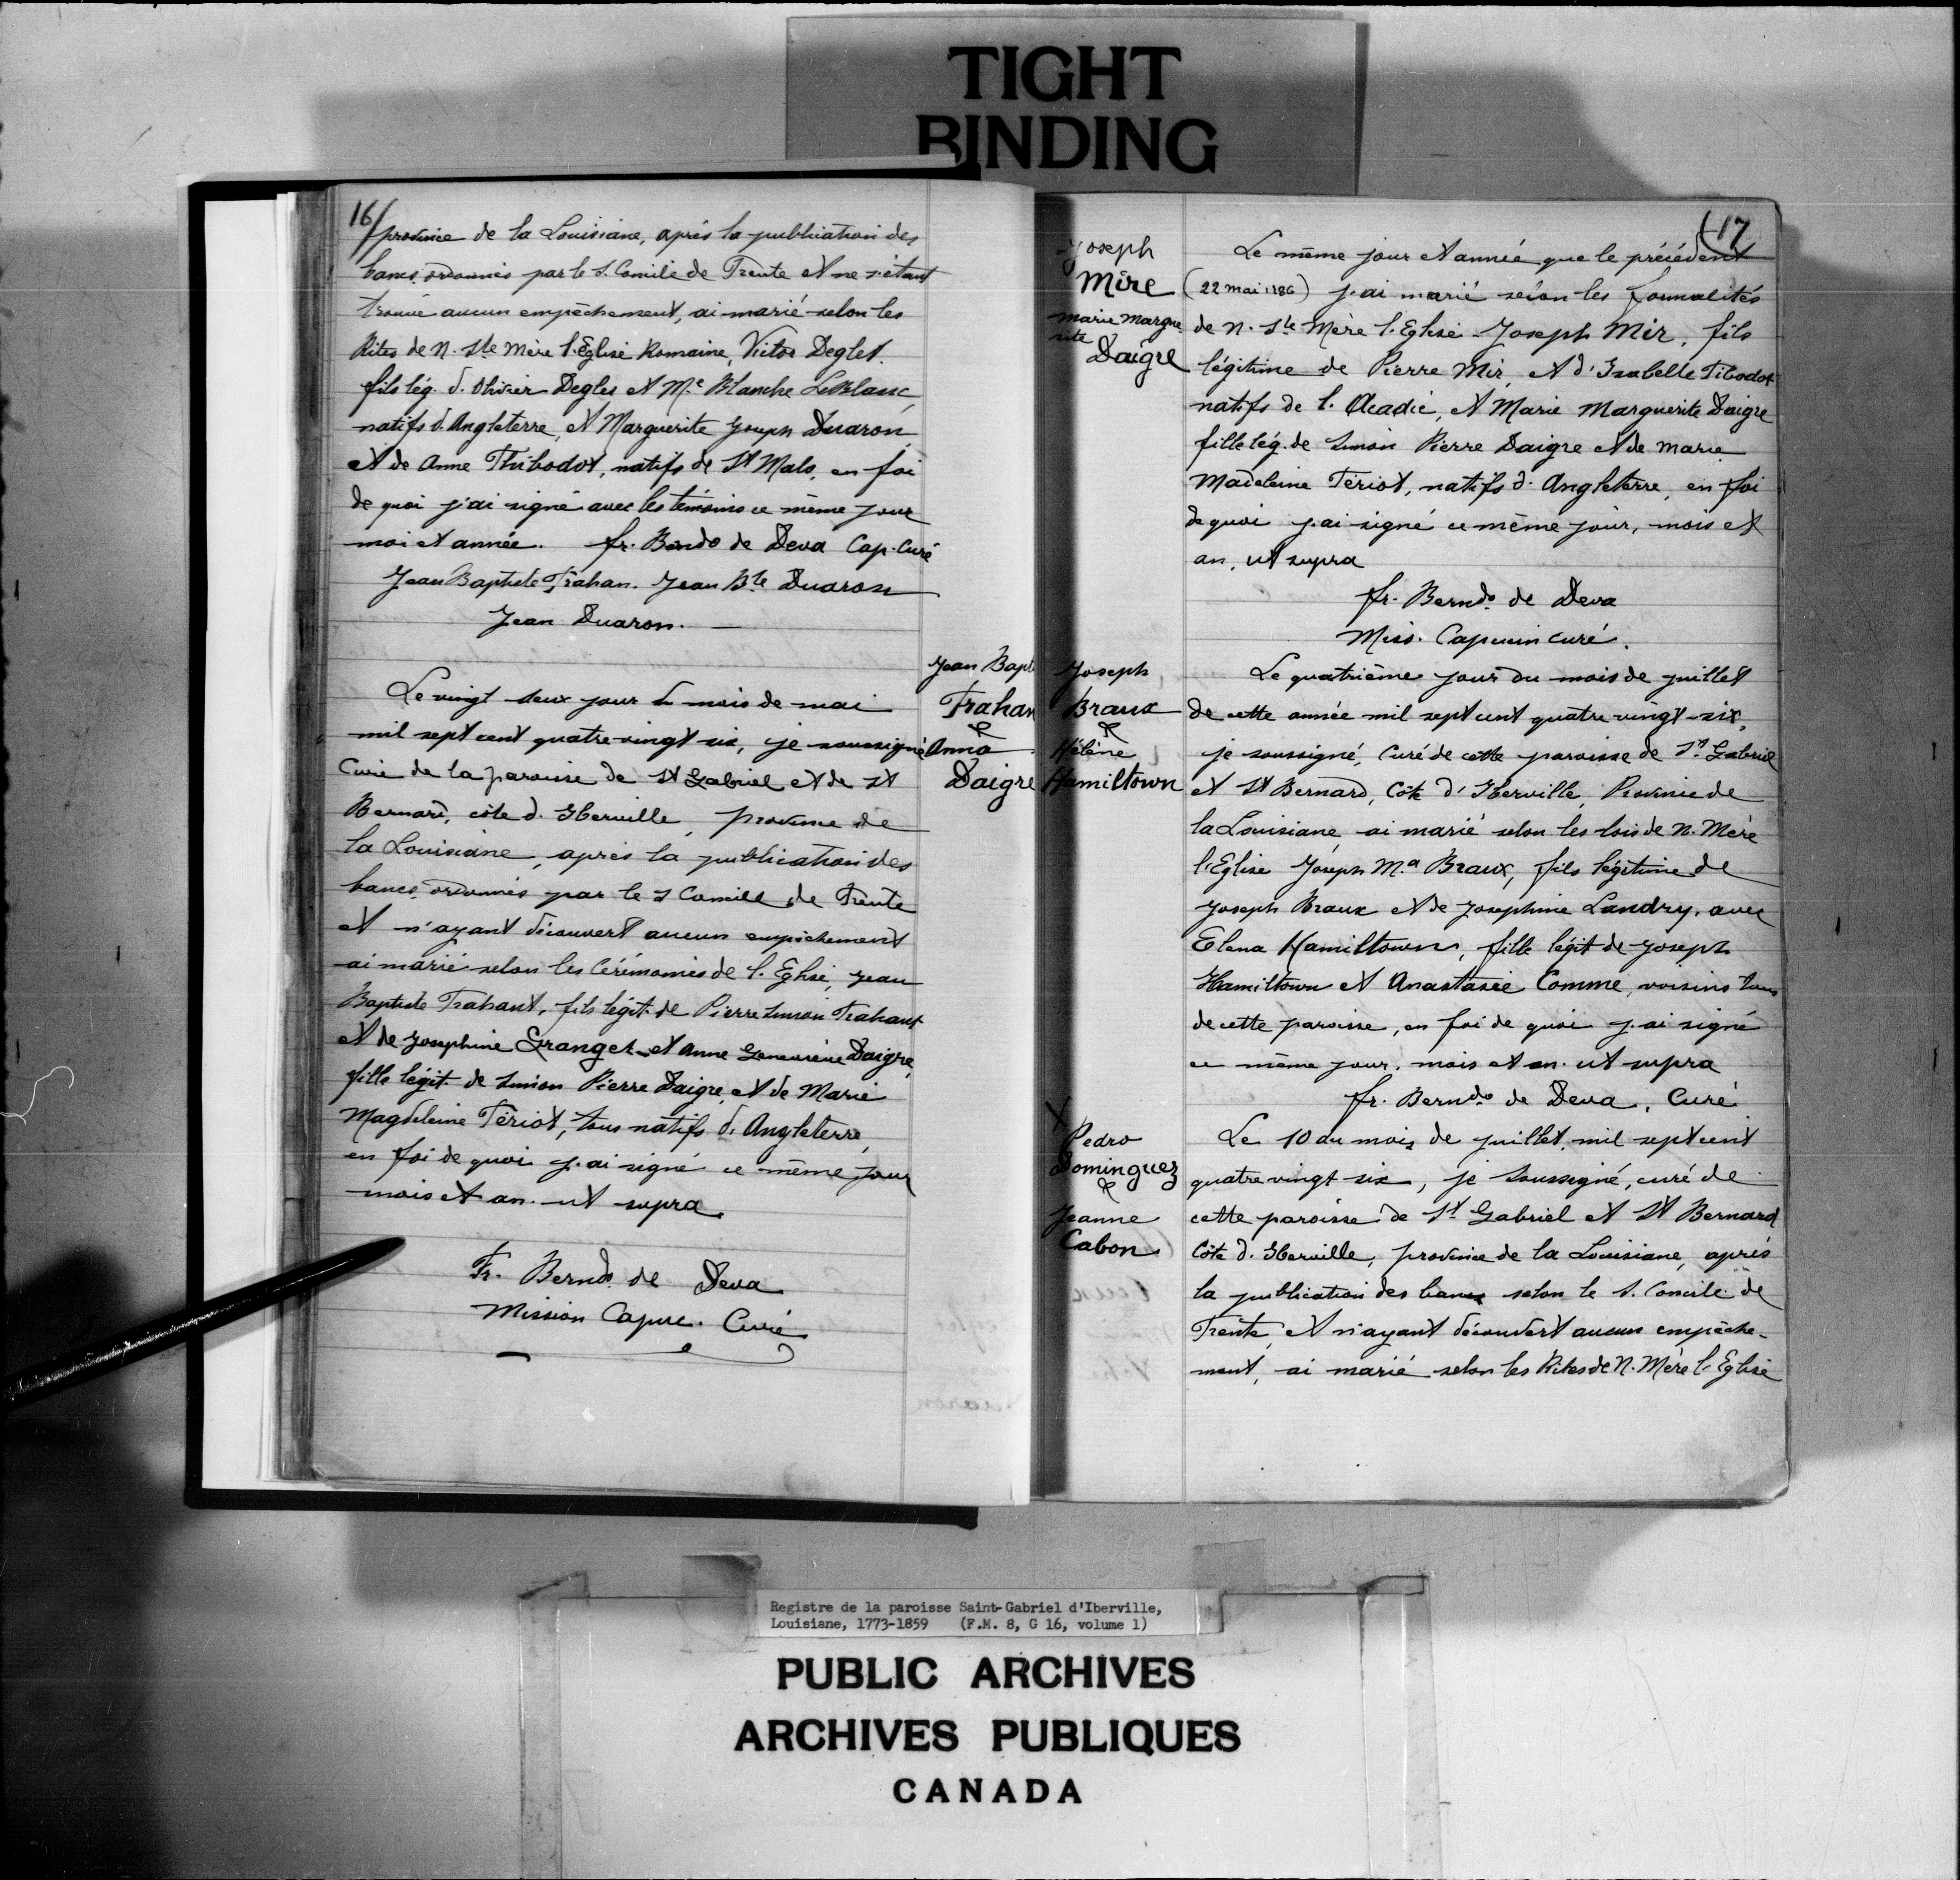 TIGHT
BINDING
16/
province de la Louisiane, après la publication des
bancs ordonnés par le S. Concile de Trente et ne s'étant
trouvé aucun empêchement, ai marié selon les
Rites de N. Ste Mère l'Eglise Romaine, Victor Deglet.
fils lég. d. Olivier Degles et M.e Blanche LeBlanc,
natifs d'Angleterre, et Marguerite Joseph Duaron
et de Anne Thibodot, natifs de St Malo, en foi
de quoi j'ai signé avec les témoins ce même jour
moi et année. fr. Berndo de Deva Cap. Curé
Jean Baptiste Trahan. Jean Bte Duaron
Jean Duaron. —
Jean Bapt
Trahan
&
Anna
Daigre
Le vingt deux jour du mois de mai
mil sept cent quatre-vingt six, je soussigné
Curé de la paroisse de St Gabriel et de St
Bernard, côte d'Iberville, province de
la Louisiane, après la publication des
bancs ordonnés par le S Concile de Trente
et n'ayant découvert aucun empêchement
ai marié selon les Cérémonies de l'Eglise, Jean
Baptiste Trahant, fils légit. de Pierre Simon Trahant
et de Josephine Granger et Anne Geneviève Daigre,
fille légit. de Simon Pierre Daigre, et de Marie
Magdeleine Tériot, tous natifs d'Angleterre,
en foi de quoi j'ai signé ce même jour
mois et an. ut supra
Fr. Berndo. de Deva
Mission Capuc. Curé
17
Joseph
Mire
Marie Margue
rite
Daigre
Le même jour et année que le précédent
(22 mai 1786) j'ai marié selon les formalités
de N. Ste Mère l'Eglise Joseph Mir, fils
légitime de Pierre Mir, et d'Isabelle Tibodot
natifs de l'Acadie, et Marie Marguerite Daigre
fille lég. de Simon Pierre Daigre et de Marie
Madeleine Tériot, natifs d'Angleterre, en foi
de quoi j'ai signé ce même jour, mois et
an, ut supra
fr. Berndo. de Deva
Miss. Capucin curé.
Joseph
Braux
&
Hélène
Hamiltown
Le quatrième jour du mois de juillet
de cette année mil sept cent quatre vingt-six,
je soussigné, Curé de cette paroisse de St. Gabriel
et St Bernard, Côte d'Iberville, Province de
la Louisiane ai marié selon les lois de N. Mère
l'Eglise Joseph M.a Braux, fils légitime de
Joseph Braux et de Josephine Landry, avec
Elena Hamiltown, fille légit de Joseph
Hamiltown et Anastasie Comme, voisins tous
de cette paroisse, en foi de quoi j'ai signé
ce même jour, mois et an. ut supra
fr. Berndo. de Deva, Curé
X
Pedro
Dominguez
&
Jeanne
Cabon
Le 10 du mois de juillet mil sept cent
quatre vingt six, je soussigné, curé de
cette paroisse de St Gabriel et St Bernard
Côte d'Iberville, province de la Louisiane, après
la publication des bancs selon le S. Concile de
Trente, et n'ayant découvert aucun empêche-
ment, ai marié selon les Rites de N. Mère l'Eglise
Registre de la paroisse Saint-Gabriel d'Iberville,
Louisiane, 1773-1859 (F.M. 8, G 16, volume 1)
PUBLIC ARCHIVES
ARCHIVES PUBLIQUES
CANADA